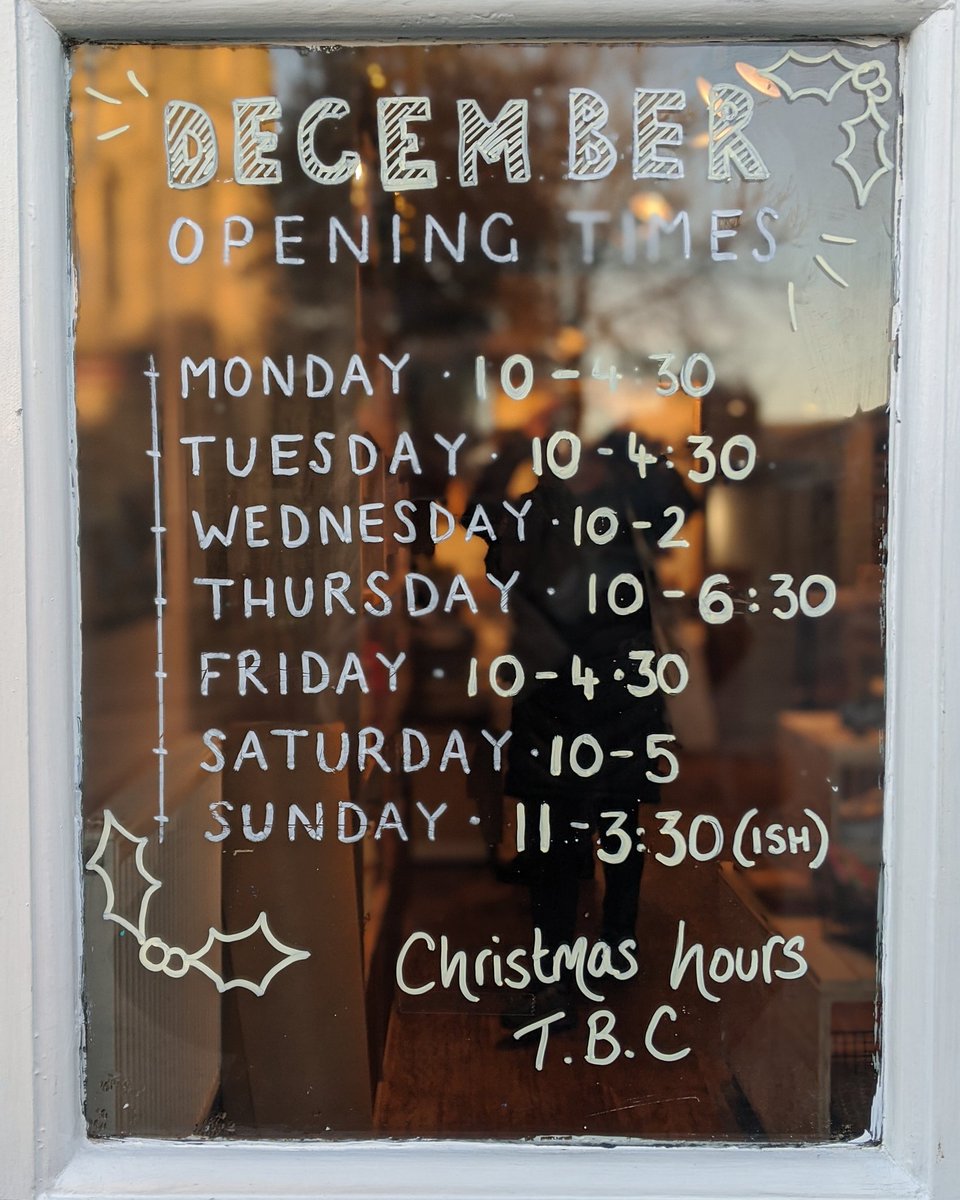 DECEMBER
OPENING TIMES
MONDAY · 10 - 4·30
TUESDAY · 10 - 4:30
WEDNESDAY · 10 - 2
THURSDAY · 10 - 6:30
FRIDAY · 10 - 4·30
SATURDAY · 10 - 5
SUNDAY · 11 - 3:30 (ISH)
Christmas hours
T.B.C